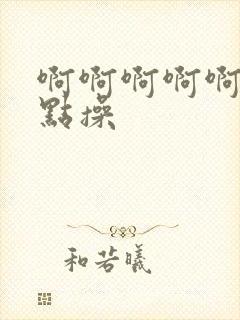 啊啊啊啊啊
點操
和若曦